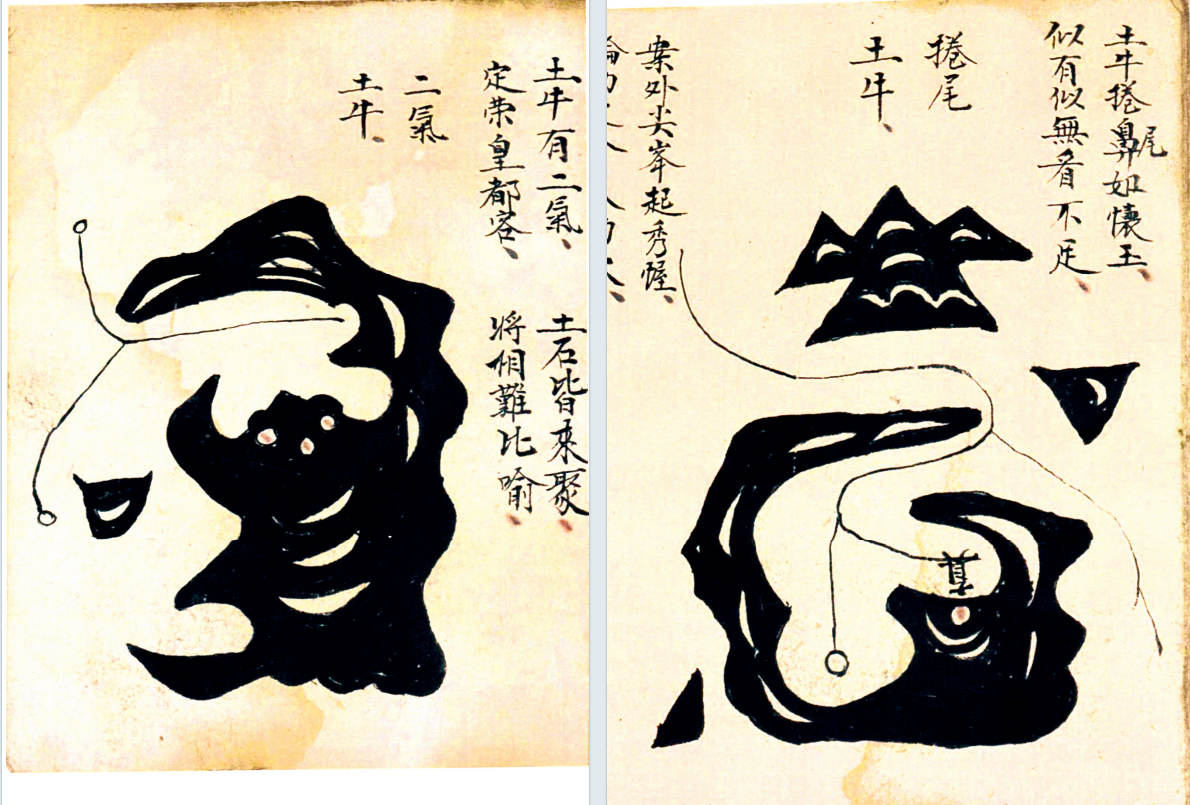 土牛捲鼻尾如懷玉
似有似無看不足
捲尾
土牛
案外尖峯起秀幄
真
土牛有二氣
土石皆來聚
定荣皇都客
将相難比喻
二氣
土牛